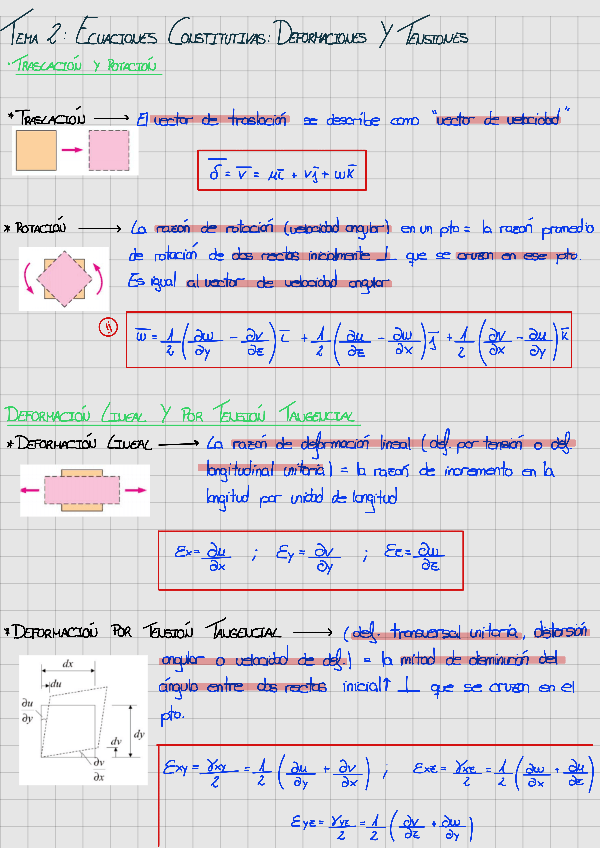 TEMA 2: ECUACIONES CONSTITUTIVAS: DEFORMACIONES Y TENSIONES
· TRASLACIÓN Y ROTACIÓN
* TRASLACIÓN → El vector de traslación se describe como "vector de velocidad"
δ̅ = v̅ = u i̅ + v j̅ + w k̅
* ROTACIÓN → La razón de rotación (velocidad angular) en un pto = la razón promedio
de rotación de dos rectas inicialmente ⊥ que se cruzan en ese pto.
Es igual al vector de velocidad angular
w̅ = 1/2 (∂w/∂y − ∂v/∂z) i̅ + 1/2 (∂u/∂z − ∂w/∂x) j̅ + 1/2 (∂v/∂x − ∂u/∂y) k̅
DEFORMACIÓN LINEAL Y POR TENSIÓN TANGENCIAL
* DEFORMACIÓN LINEAL → La razón de deformación lineal (def. por tensión o def.
longitudinal unitaria) = la razón de incremento en la
longitud por unidad de longitud
εx = ∂u/∂x ; εy = ∂v/∂y ; εz = ∂w/∂z
* DEFORMACIÓN POR TENSIÓN TANGENCIAL → (def. transversal unitaria, distorsión
angular o velocidad de def.) = la mitad de disminución del
ángulo entre dos rectas inicial↑ ⊥ que se cruzan en el
pto.
dx
du
∂u/∂y
dy
dv
∂v/∂x
εxy = γxy/2 = 1/2 (∂u/∂y + ∂v/∂x) ; εxz = γxz/2 = 1/2 (∂w/∂x + ∂u/∂z)
εyz = γyz/2 = 1/2 (∂v/∂z + ∂w/∂y)